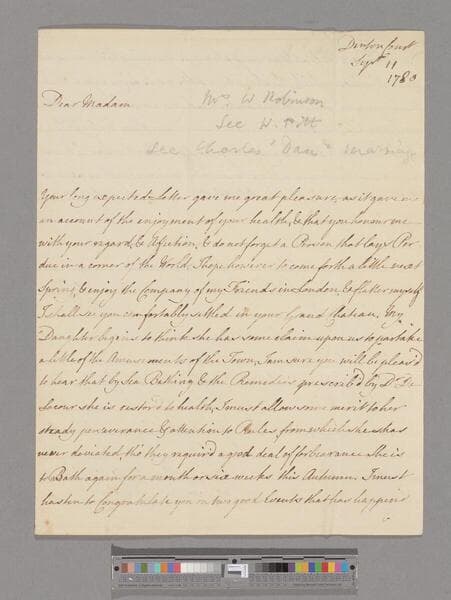 Denton Court
Sept 11
1780
Dear Madam
Mrs W Robinson
See W. Pitt
See Charles' Dau marriage
Your long expected Letter gave me great pleasure, as it gave me
an account of the enjoyment of your health, & that you honour me
with your regard, & Affection, & do not forget a Person that lays Per
due in a corner of the World, I hope however to come forth a little next
Spring, & enjoy the Company of my Friends in London, & flatter myself
I shall see you comfortably settled in your Grand Chateau. My
Daughter begins to think she has some claim upon us to partake
a little of the Amusements of the Town, I am sure you will be pleas'd
to hear that by Sea Bathing & the Remedies prescrib'd by Dr De
she is restor'd to health, I must allow some merit to her
steady perseverance & attention to Rules from which she has
never deviated, tho' they requir'd a good deal of forbearance She is
to Bath again for a month or six weeks this Autumn. I must
hasten to Congratulate you on two good Events that has happen'd